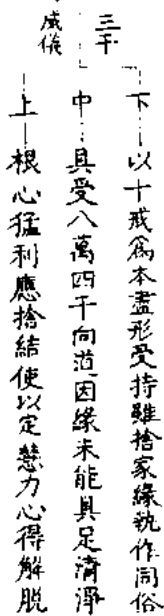 三千
威儀
下 以十戒為本盡形受持雖捨家緣執作同俗
中 具受八萬四千向道因緣未能具足清淨
上 根心猛利應捨結使以定慧力心得解脫